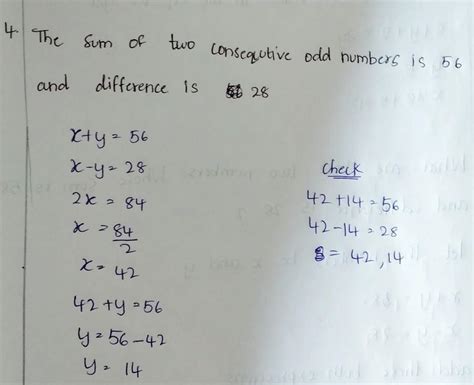 4. The sum of two consequtive odd numbers is 56
and difference is 28
x+y = 56
x-y = 28
2x = 84
x = 84/2
x = 42
42+y = 56
y = 56-42
y = 14
Check
42+14 = 56
42-14 = 28
= 42, 14